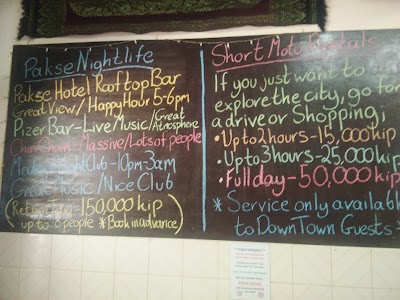 Pakse Nightlife
Pakse Hotel Rooftop Bar
Great View / Happy Hour 5-6pm
Pizer Bar - Live/Music/Great Atmosphere
Massive/Lots of people
Club - 10pm-3am
Great Music / Nice Club
150,000 kip
up to 8 people *Book in advance)
Short Moto Rentals
If you just want to
explore the city, go for
a drive or Shopping,
• Up to 2 hours - 15,000 kip
• Up to 3 hours - 25,000 kip
• Full day - 50,000 kip
* Service only available
to DownTown Guests *